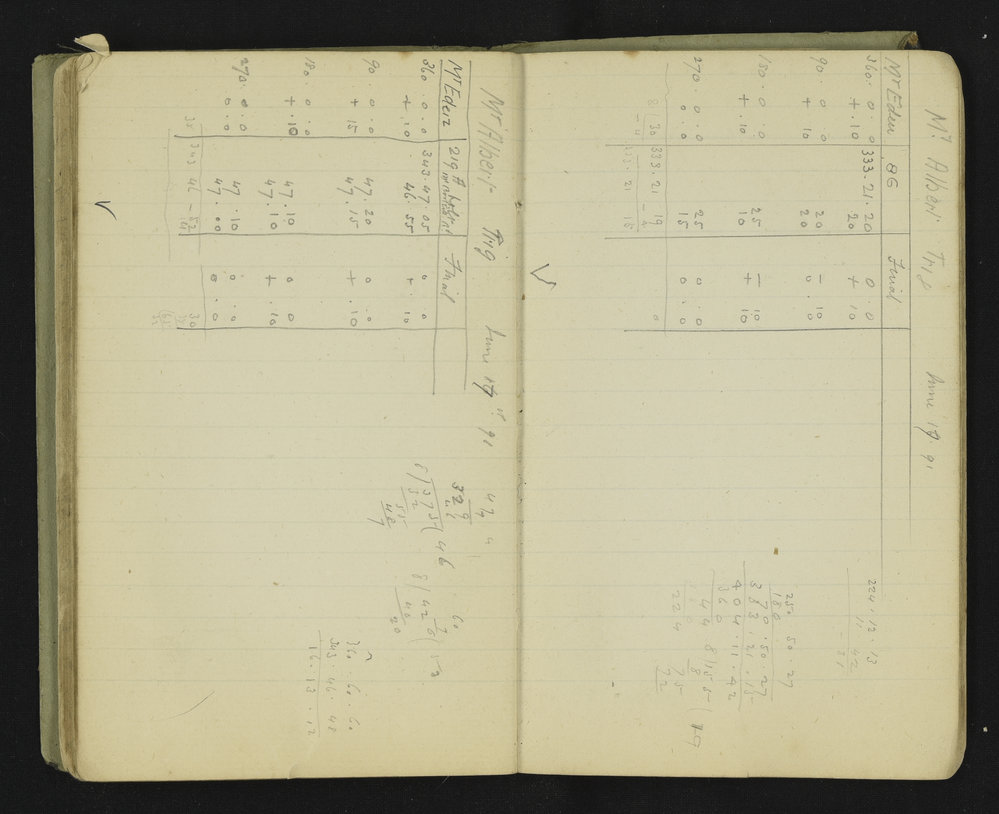 Mr Albert Trig June 19. 91
Mr Eden 86 Final
360. 0. 0 333. 21. 20 0 0
+ 10 20 + 10
90. 0 0 20 - 10
+ 10 20 0 0
180. 0. 0 25 - 10
+ 10 10 + 10
270. 0. 0 25 0. 0
0 0 15 0. 0
8 | 30 333. 21 - 19 0
- 4
333. 21 15
224. 12. 13
11 - 42
31
250 50. 27
180
370. 50. 27
333. 21. 15
404. 11. 42
360
44
224
8 ) 155 ( 19
8
75
72
Mr Albert Trig June 19 91
Mr Eden 219 Final
360. 0. 0 343 47 05 0. 0
+ . 10 46 55 + . 10
90. 0. 0 47. 20 0 . 0
+ 15 47. 15 + . 10
180. 0. 0 47. 10 0
+ . 10 47. 10 + . 10
270. 0. 0 47. 10 0. 0
0. 0 47. 00 0. 0
343 46 - 52 30
47
329
8 ) 375 ( 46
32
55
48
7
60
7
8 ) 420 ( 52
40
20
360. 60. 60
343. 46. 48
16. 13. 12